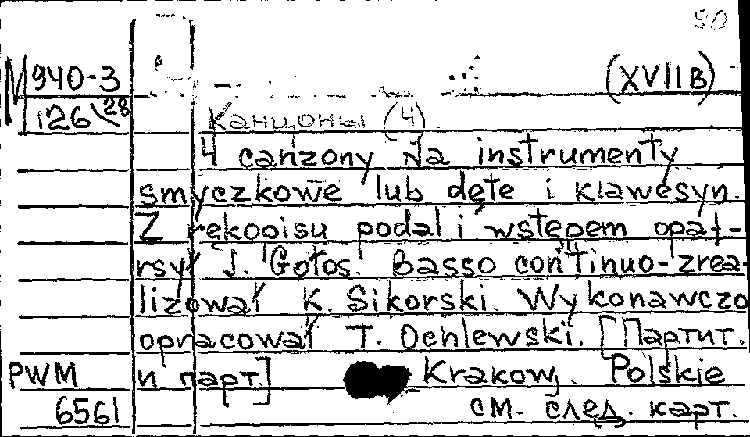 50
M 940-3 (XVIIв)
126\28 Канцоны (4)
4 canzony na instrumenty
smyczkowe lub dęte i klawesyn.
Z rękopisu podal i wstępem opat-
rsył J. Gołos. Basso continuo-zrea-
lizował K. Sikorski. Wykonawczo
opracował T. Ochlewski. [Партит.
PWM и парт.] Krakow, Polskie
6561 см. след. карт.